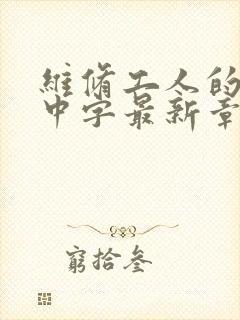 維修工人的
中字最新章
窮拾叁